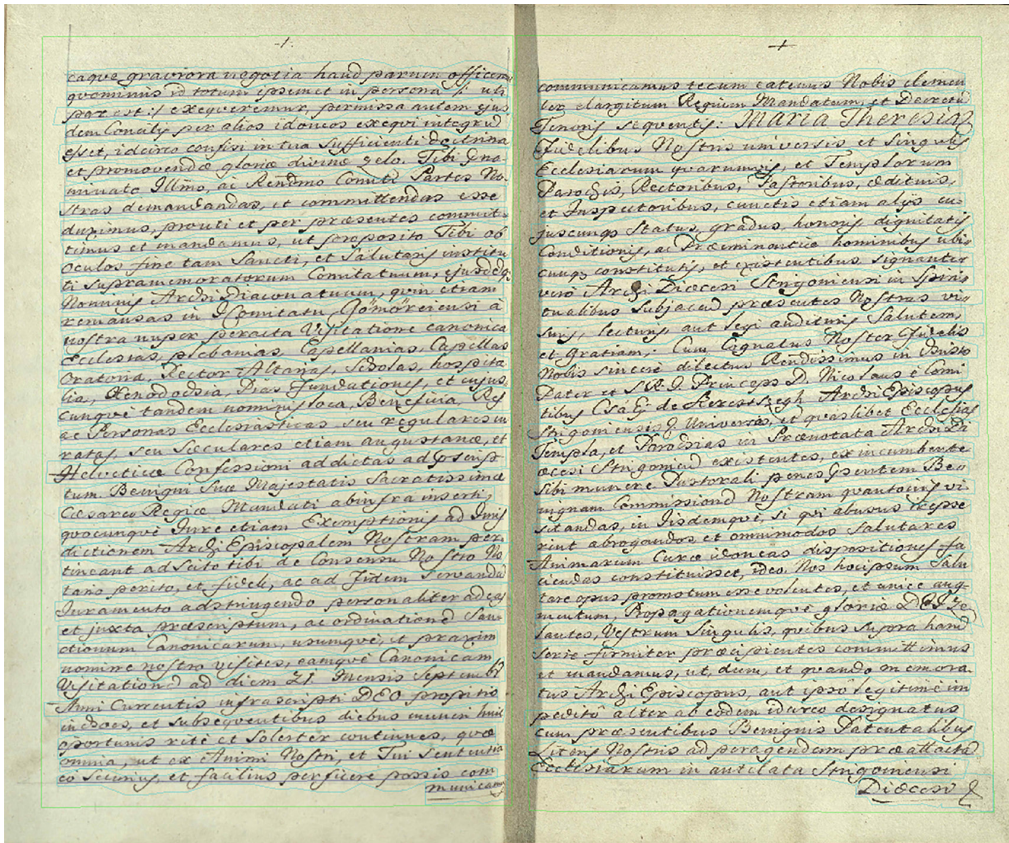 caque graviora negotia haud parum officere
quominus id totum ipsemet in persona /: uti
par est :/ exequeremur, permissa autem ejus
dem Concilij per alios idoneos exequi integrum
esset, idcirco confisi in tua sufficienti doctrina
et promovendæ gloriæ divinæ zelo. Tibi Eno-
minato Illmo, ac Rendmo Comiti Partes No-
stras demandandas, et committendas esse
duximus, prouti et per præsentes commit-
timus et mandamus, ut proposito Tibi ob
oculos fine tam Sancti, et Salutaris institu
ti supramemoratorum Comitatuum, ejusdeq
Nominis Archi Diaconatuum, quin etiam
remansas in Comitatu Gömöreiensi à
nostra nuper peracta Visitatione canonica
Ecclesias plebanias, Capellanias, Capellas
Oratoria, Rector Altarias, Scholas, hospita
lia, Xenodochia, Dias fundationes, et cujus
cunque tandem nominis loca, Beneficia, Res
ac Personas Ecclesiasticas seu regulares in
ratas, seu Sæculares etiam augustanæ, et
Helveticæ Confessioni addictas
tum Benigni Suæ Majestatis Sacratissimæ
Cæsareo Regiæ Mandati ab infra inserti,
quocunque Jure etiam Exemptionis ad Juris
dictionem Archi Episcopalem Nostram per
tineant adscito tibi de Consensu Nostro No
tario perito, et fideli, ac ad fidem servandam
Juramento adstringendo personaliter adeas
et juxta præscriptum, ac ordinationem San-
ctionum Canonicarum, usumque, et praxim
nomine nostro visites, eamque Canonicam
Visitationem ad diem 21 Mensis Septemb
Anni Currentis infrascripti DEO propitio
inchoes, et subsequentibus diebus muneri huic
oportunis rite et solerter continues, quæ
omnia, ut ex Animi Nostri, et Tui sententia
eo securius, et facilius perficere possis com
municam
communicamus tecum eatenus Nobis clemen
ter elargitum Regium Mandatum, et Decretum
Tenoris sequentis: Maria Theresia
Fidelibus Nostris universis et Singulis
Ecclesiarum quarumvis, et Templorum
Parochis, Rectoribus, Pastoribus, ædituis,
et Inspectoribus, cunctis etiam alijs cu-
juscunque Status, gradus, honoris dignitatis
Conditionis, ac Præeminentiæ hominibus ubi
cunque constitutis, et existentibus, signanter
vero Archi Diœcesi Strigoniensi in Spiri
tualibus Subjacen præsentes Nostras vi
suris, lecturis aut legi audituris Salutem,
et Gratiam. Cum Cognatus Noster fidelis
Nobis sincere dilectus Rendissimus in Christo
Pater et S.R.I. Princeps D. Nicolaus è Comi
tibus Csaky de Keresztszegh Archi Episcopus
Strigoniensis Universas, et quaslibet Ecclesias
Templa, et Parochias in Prænotata Archi Di
œcesi Strigonien existentes, ex incumbente
sibi munere Pastorali penes præsentem Be
nignam Commissionem Nostram quantocius vi
sitandas, in iisdemque, si qui abusus reppe
rirent abrogandos et omnimodos salutares
Animarum Curæ idoneas dispositiones fa
ciendas constituisset, ideo Nos hocipsum Salu
tare opus promotum esse volentes, et unice aug-
mentum, Propagationemque gloriæ DEI Ze
lantes, Vestrum singulis, quibus supra hand
serie firmiter præcipientes committimus
et mandamus, ut, dum, et quando memora
tus Archi Episcopus, aut ipso legitime im
pedito alter ab eodem idcirco designatus
cum præsentibus Benignis Patentalibus
Literis Nostris ad peragendam præattactam
Ecclesiarum in antelata Strigoniensi
Diœcesi